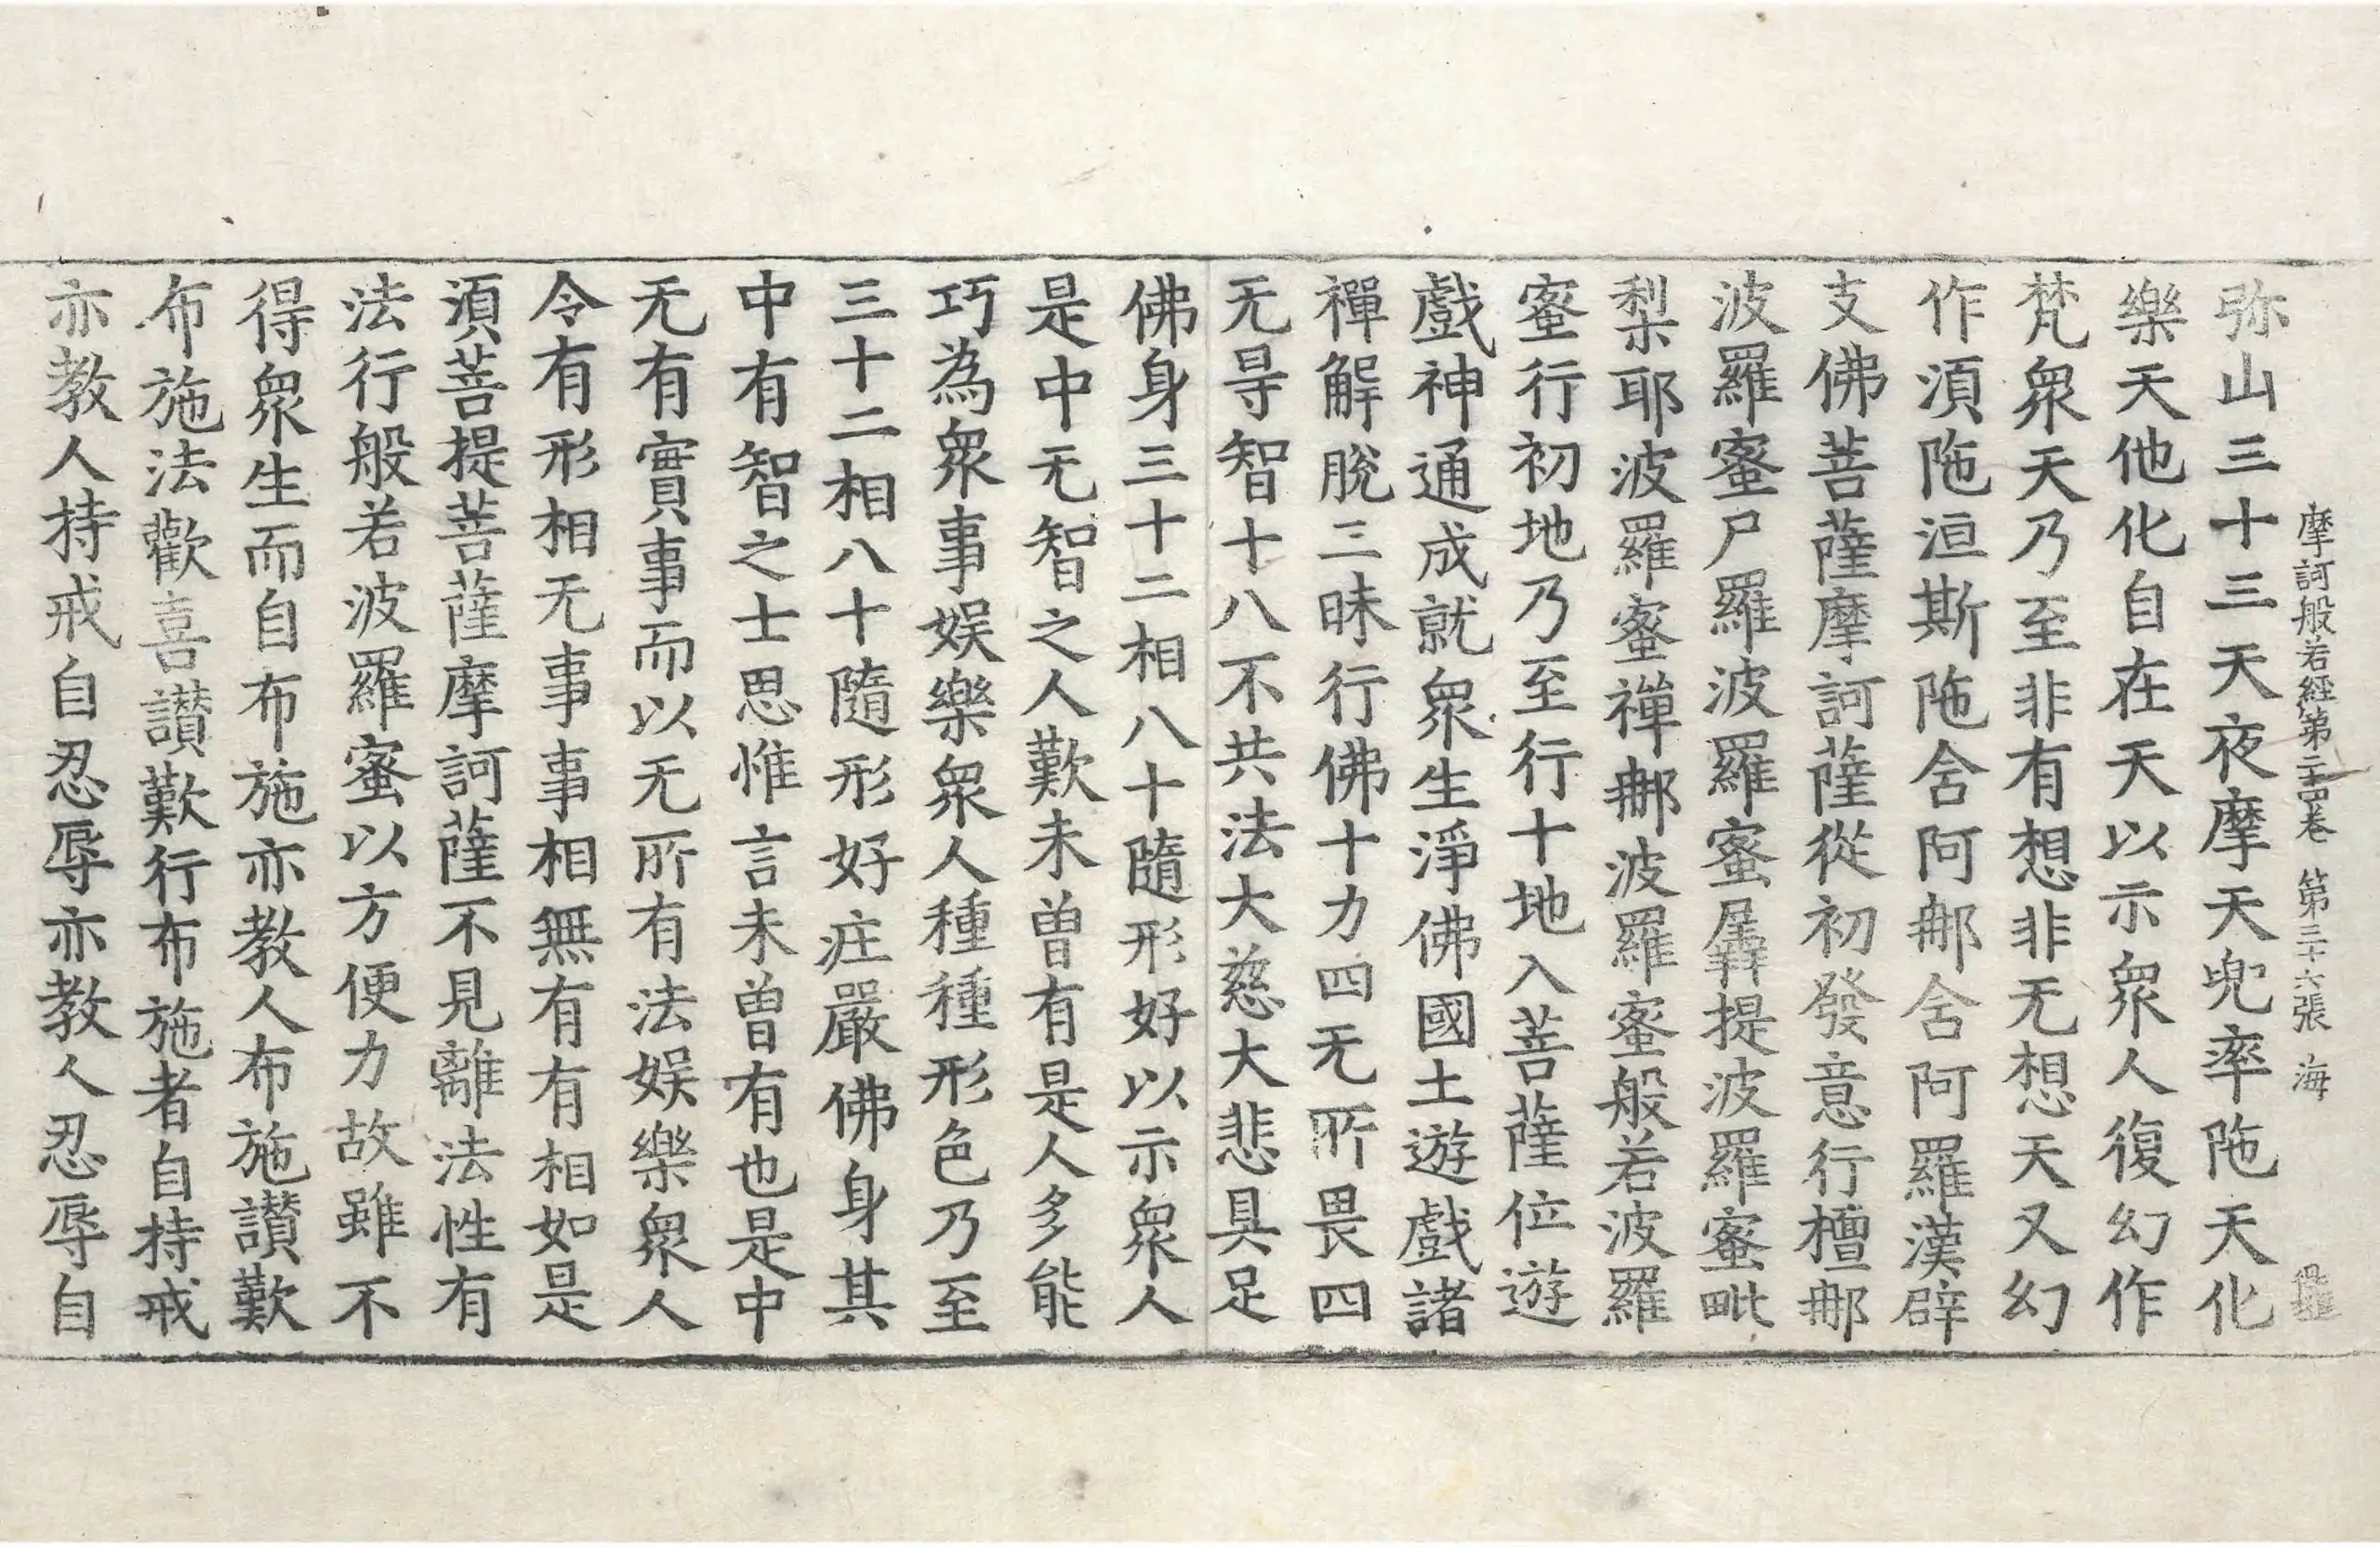 摩訶般若經第二十四卷 第三十六張 海
弥山三十三天夜摩天兜率陁天化
樂天他化自在天以示衆人復幻作
梵衆天乃至非有想非无想天又幻
作湏陁洹斯陁含阿那含阿羅漢辟
支佛菩薩摩訶薩從初發意行檀那
波羅蜜尸羅波羅蜜羼提波羅蜜毗
梨耶波羅蜜禪那波羅蜜般若波羅
蜜行初地乃至行十地入菩薩位遊
戲神通成就衆生淨佛國土遊戲諸
禪解脫三昧行佛十力四无所畏四
无㝵智十八不共法大慈大悲具足
佛身三十二相八十隨形好以示衆人
是中无智之人歎未曾有是人多能
巧為衆事娛樂衆人種種形色乃至
三十二相八十隨形好庄嚴佛身其
中有智之士思惟言未曾有也是中
无有實事而以无所有法娛樂衆人
令有形相无事事相無有有相如是
湏菩提菩薩摩訶薩不見離法性有
法行般若波羅蜜以方便力故雖不
得衆生而自布施亦教人布施讃歎
布施法歡喜讃歎行布施者自持戒
亦教人持戒自忍辱亦教人忍辱自